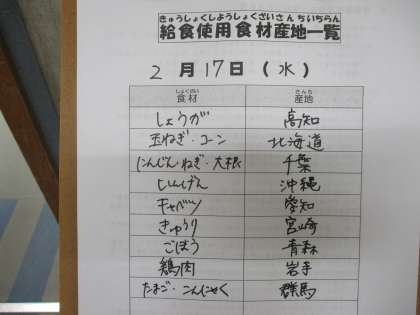 きゅうしょくしようしょくざいさんちいちらん
給食使用食材産地一覧
2月17日(水)
しょくざい さんち
食材 産地
しょうが 高知
玉ねぎ・コーン 北海道
にんじん・ねぎ・大根 千葉
いんげん 沖縄
キャベツ 愛知
きゅうり 宮崎
ごぼう 青森
鶏肉 岩手
たまご・こんにゃく 群馬